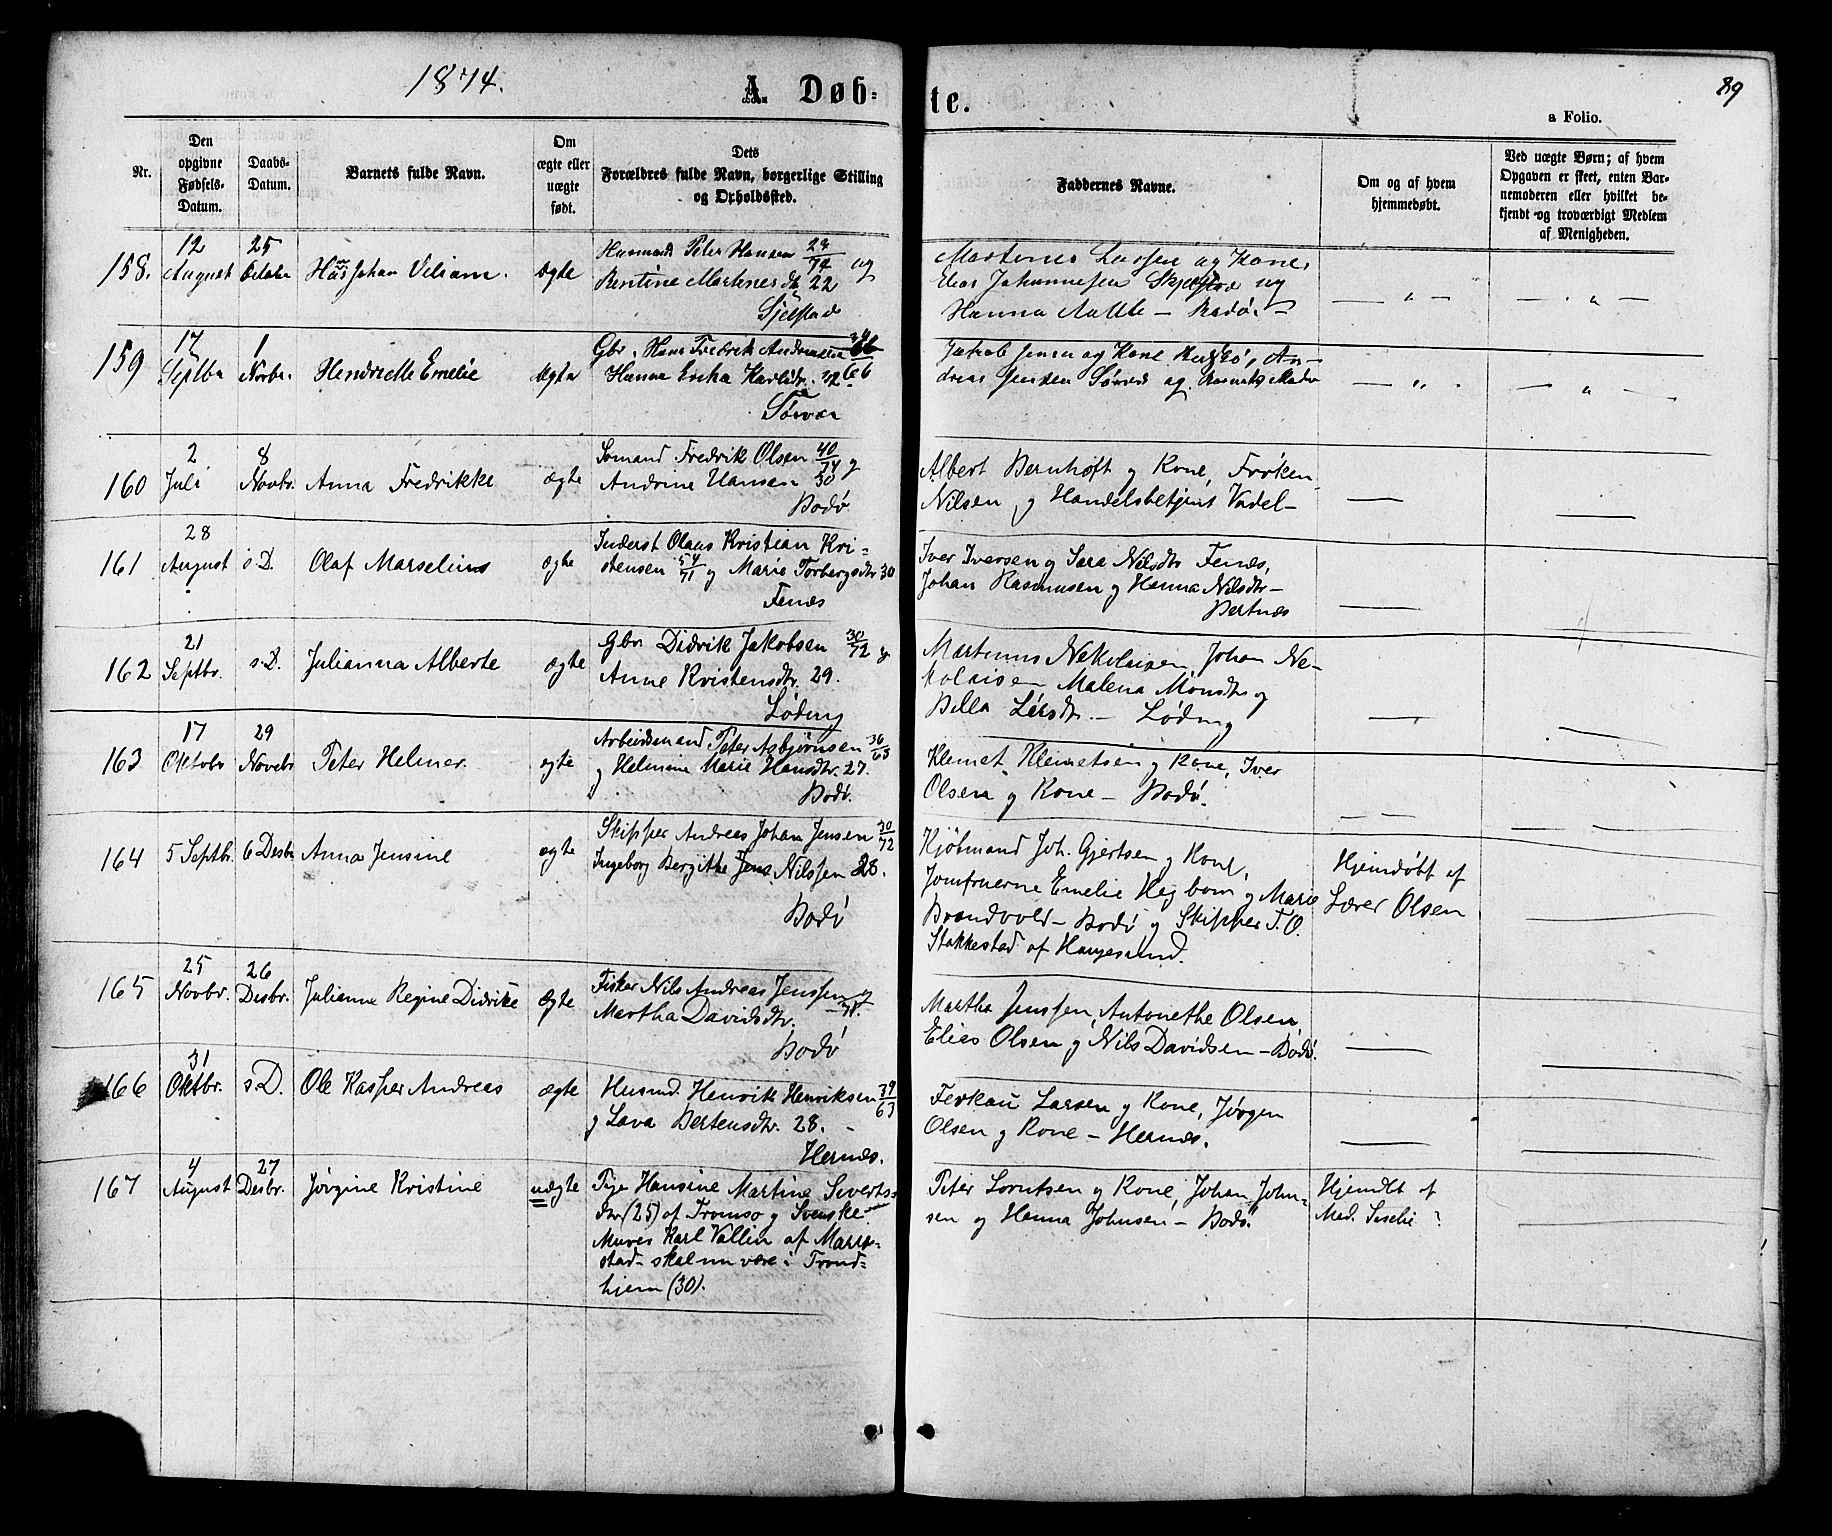 1874.
A. Døb-
te.
89
a Folio.
Nr.
Den opgivne Fødsels-Datum.
Daabs-Datum.
Barnets fulde Navn.
Om ægte eller uægte født.
Dets Forældres fulde Navn, borgerlige Stilling og Opholdssted.
Faddernes Navne.
Om og af hvem hjemmedøbt.
Ved uægte Børn; af hvem Opgaven er skeet, enten Barnemoderen eller hvilket bekjendt og troværdigt Medlem af Menigheden.
158. 12 August 25 Octobr Hans Johan Viliam. ægte
Husmand Peter Hansen 28/74 og
Bentine Martinesdt 22
Sjelstad
Martines Larsen og Kone,
Elias Johannesen Skjelstad og
Hanna - Bodø -
159 17 Septbr 1 Novbr. Hendrette Emelie ægte
Gbr. Hans Fredrik Andreassen 66
Hanna Erika Karlsdr.
Sørvær
Jakob Jensen og Kone, An-
dreas Jensen og
160 2 Juli 8 Novbr. Anna Fredrikke ægte
Sømand Fredrik Olsen 40/74 g
Andrine Hansen 30
Bodø
Albert Bernhoft g Kone, Frøken
Nilsen g Handelsbetjent Vadel-
161 28 August s.D. Olaf Marselius ægte
Inderst Olaus Kristian Kri-
stensen 54/71 g Marie Torbergsdtr 30
Fenæs
Iver Iversen g Sara Nilsdtr Fenæs,
Johan Rasmusen g Hanna Nilsdtr-
Bertnæs
162 21 Septbr. s.D. Julianna Alberte ægte
Gbr. Didrik Jakobsen 30/72 g
Anne Kristensdtr. 29.
Løding
Martinus Nekolaisen, Johan Ne-
kolaisen Malena Monsdtr g
Pella Larsdtr. - Løding
163 17 Oktobr 29 Novebr Peter Helmer. ægte
Arbeidsmand Peter Asbjørnsen 36/63
g Helmine Marie Hansdtr. 27.
Bodø.
Klemet Klemetsen g Kone, Iver
Olsen g Kone - Bodø.
164 5 Septbr. 6 Desbr Anna Jensine ægte
Skipper Andreas Johan Jensen 30/72
Ingeborg Bergitte Jens. Nilssen 28.
Bodø
Kjöbmand Joh. Gjertsen g Kone,
Jomfruerne Emelie Hegbom g Marie
Brandvold - Bodø g Skipper T. O.
Stakkestad af Haugesund.
Hjemdøbt af
Lærer Olsen
165 25 Novbr. 26 Desbr. Julianne Regine Didrike ægte
Fisker Nils Andreas Jenssen g
Martha Davidsdtr. 31.
Bodø
Martha Jenssen, Antonethe Olsen,
Elias Olsen g Nils Davidsen - Bodø.
166 31 Oktbr. s.D. Ole Kasper Andreas ægte
Husmd. Henrik Henriksen 39/63
g Lava Bertensdtr. 28.
Hernæs.
Larsen g Kone, Jørgen
Olsen g Kone - Hernæs.
167 4 August 27 Desbr. Jørgine Kristine uægte
Pige Hansine Martine Siverts-
dtr (25) af Tromsø g Svenske
Murer Karl Vallin af Marie-
stad - skal nu være i Trond-
hjem (30).
Peter Lorntsen g Kone, Johan John-
sen og Hanna Johnsen - Bodø.
Hjemdbt af
Mad.